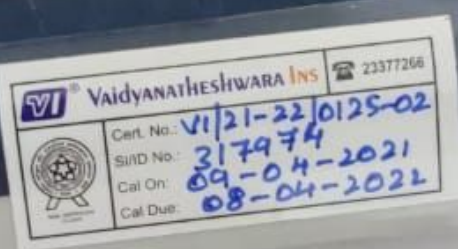 VI® VAidyANATHESHWARA INS ☎ 23377266
Cert. No.: VI/21-22/0125-02
SI/ID No.: 317974
Cal On: 09-04-2021
Cal Due: 08-04-2022